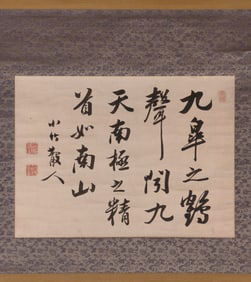 九皐之鶴
聲聞九
天南極之精
首如南山
小竹散人